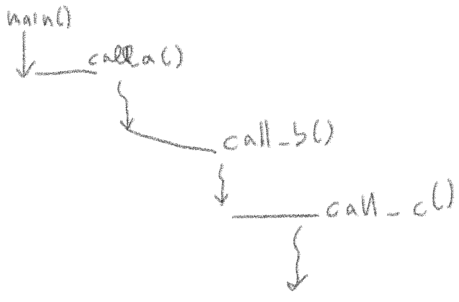 main()
call_a()
call_b()
call_c()